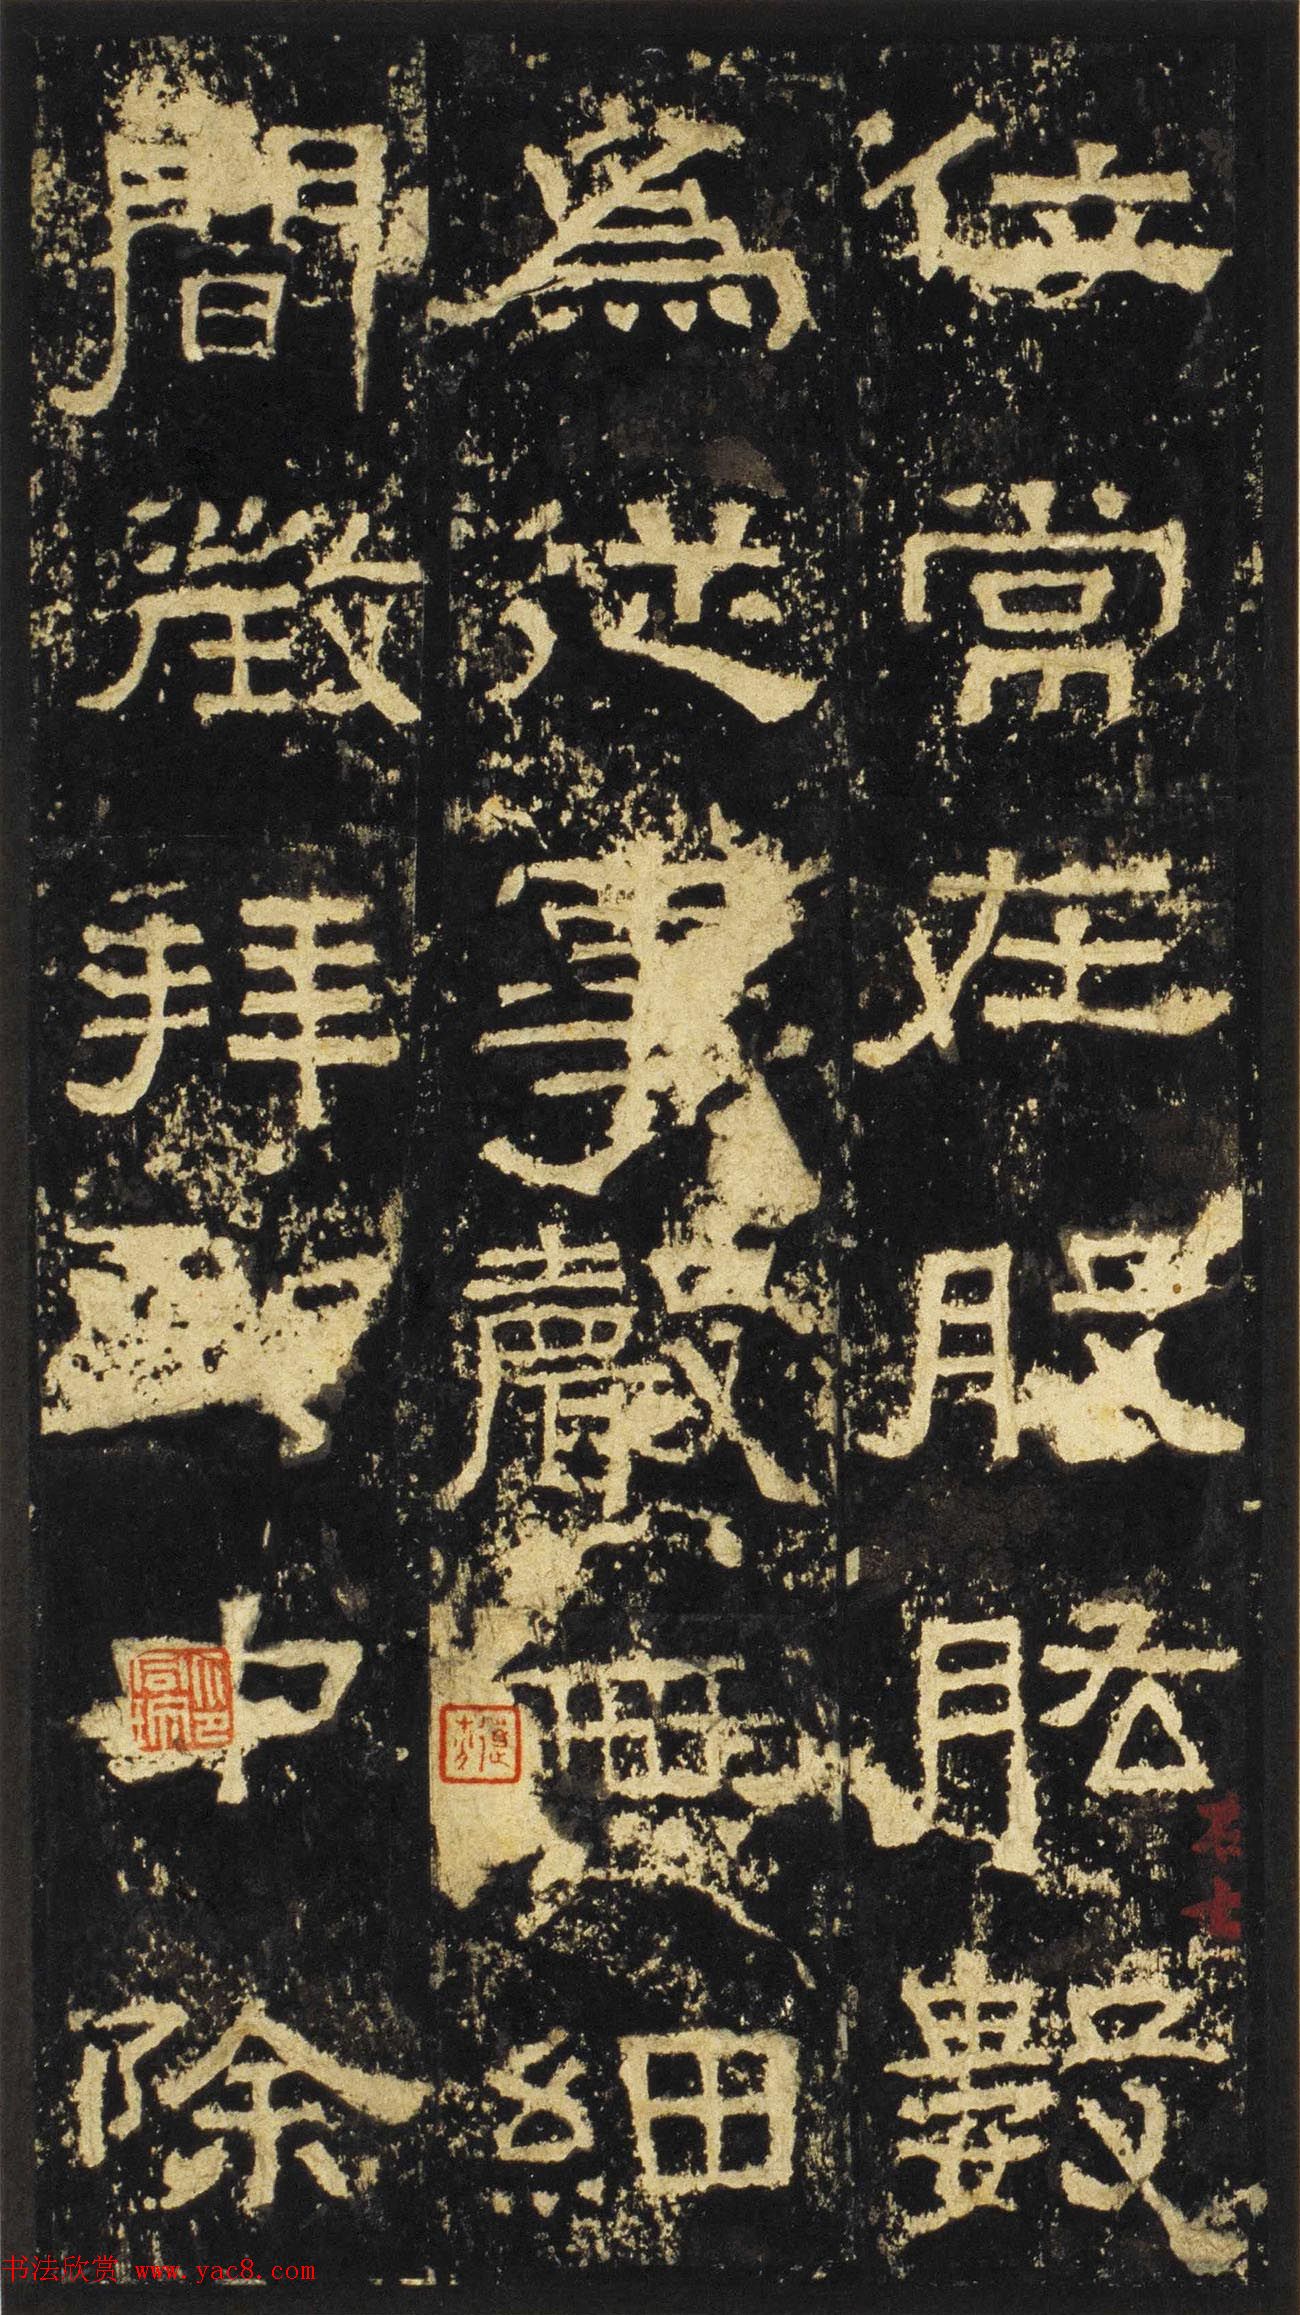 位常在股肱數
為從事聲無細
聞徵拜郎中除
书法欣赏 www.yac8.com